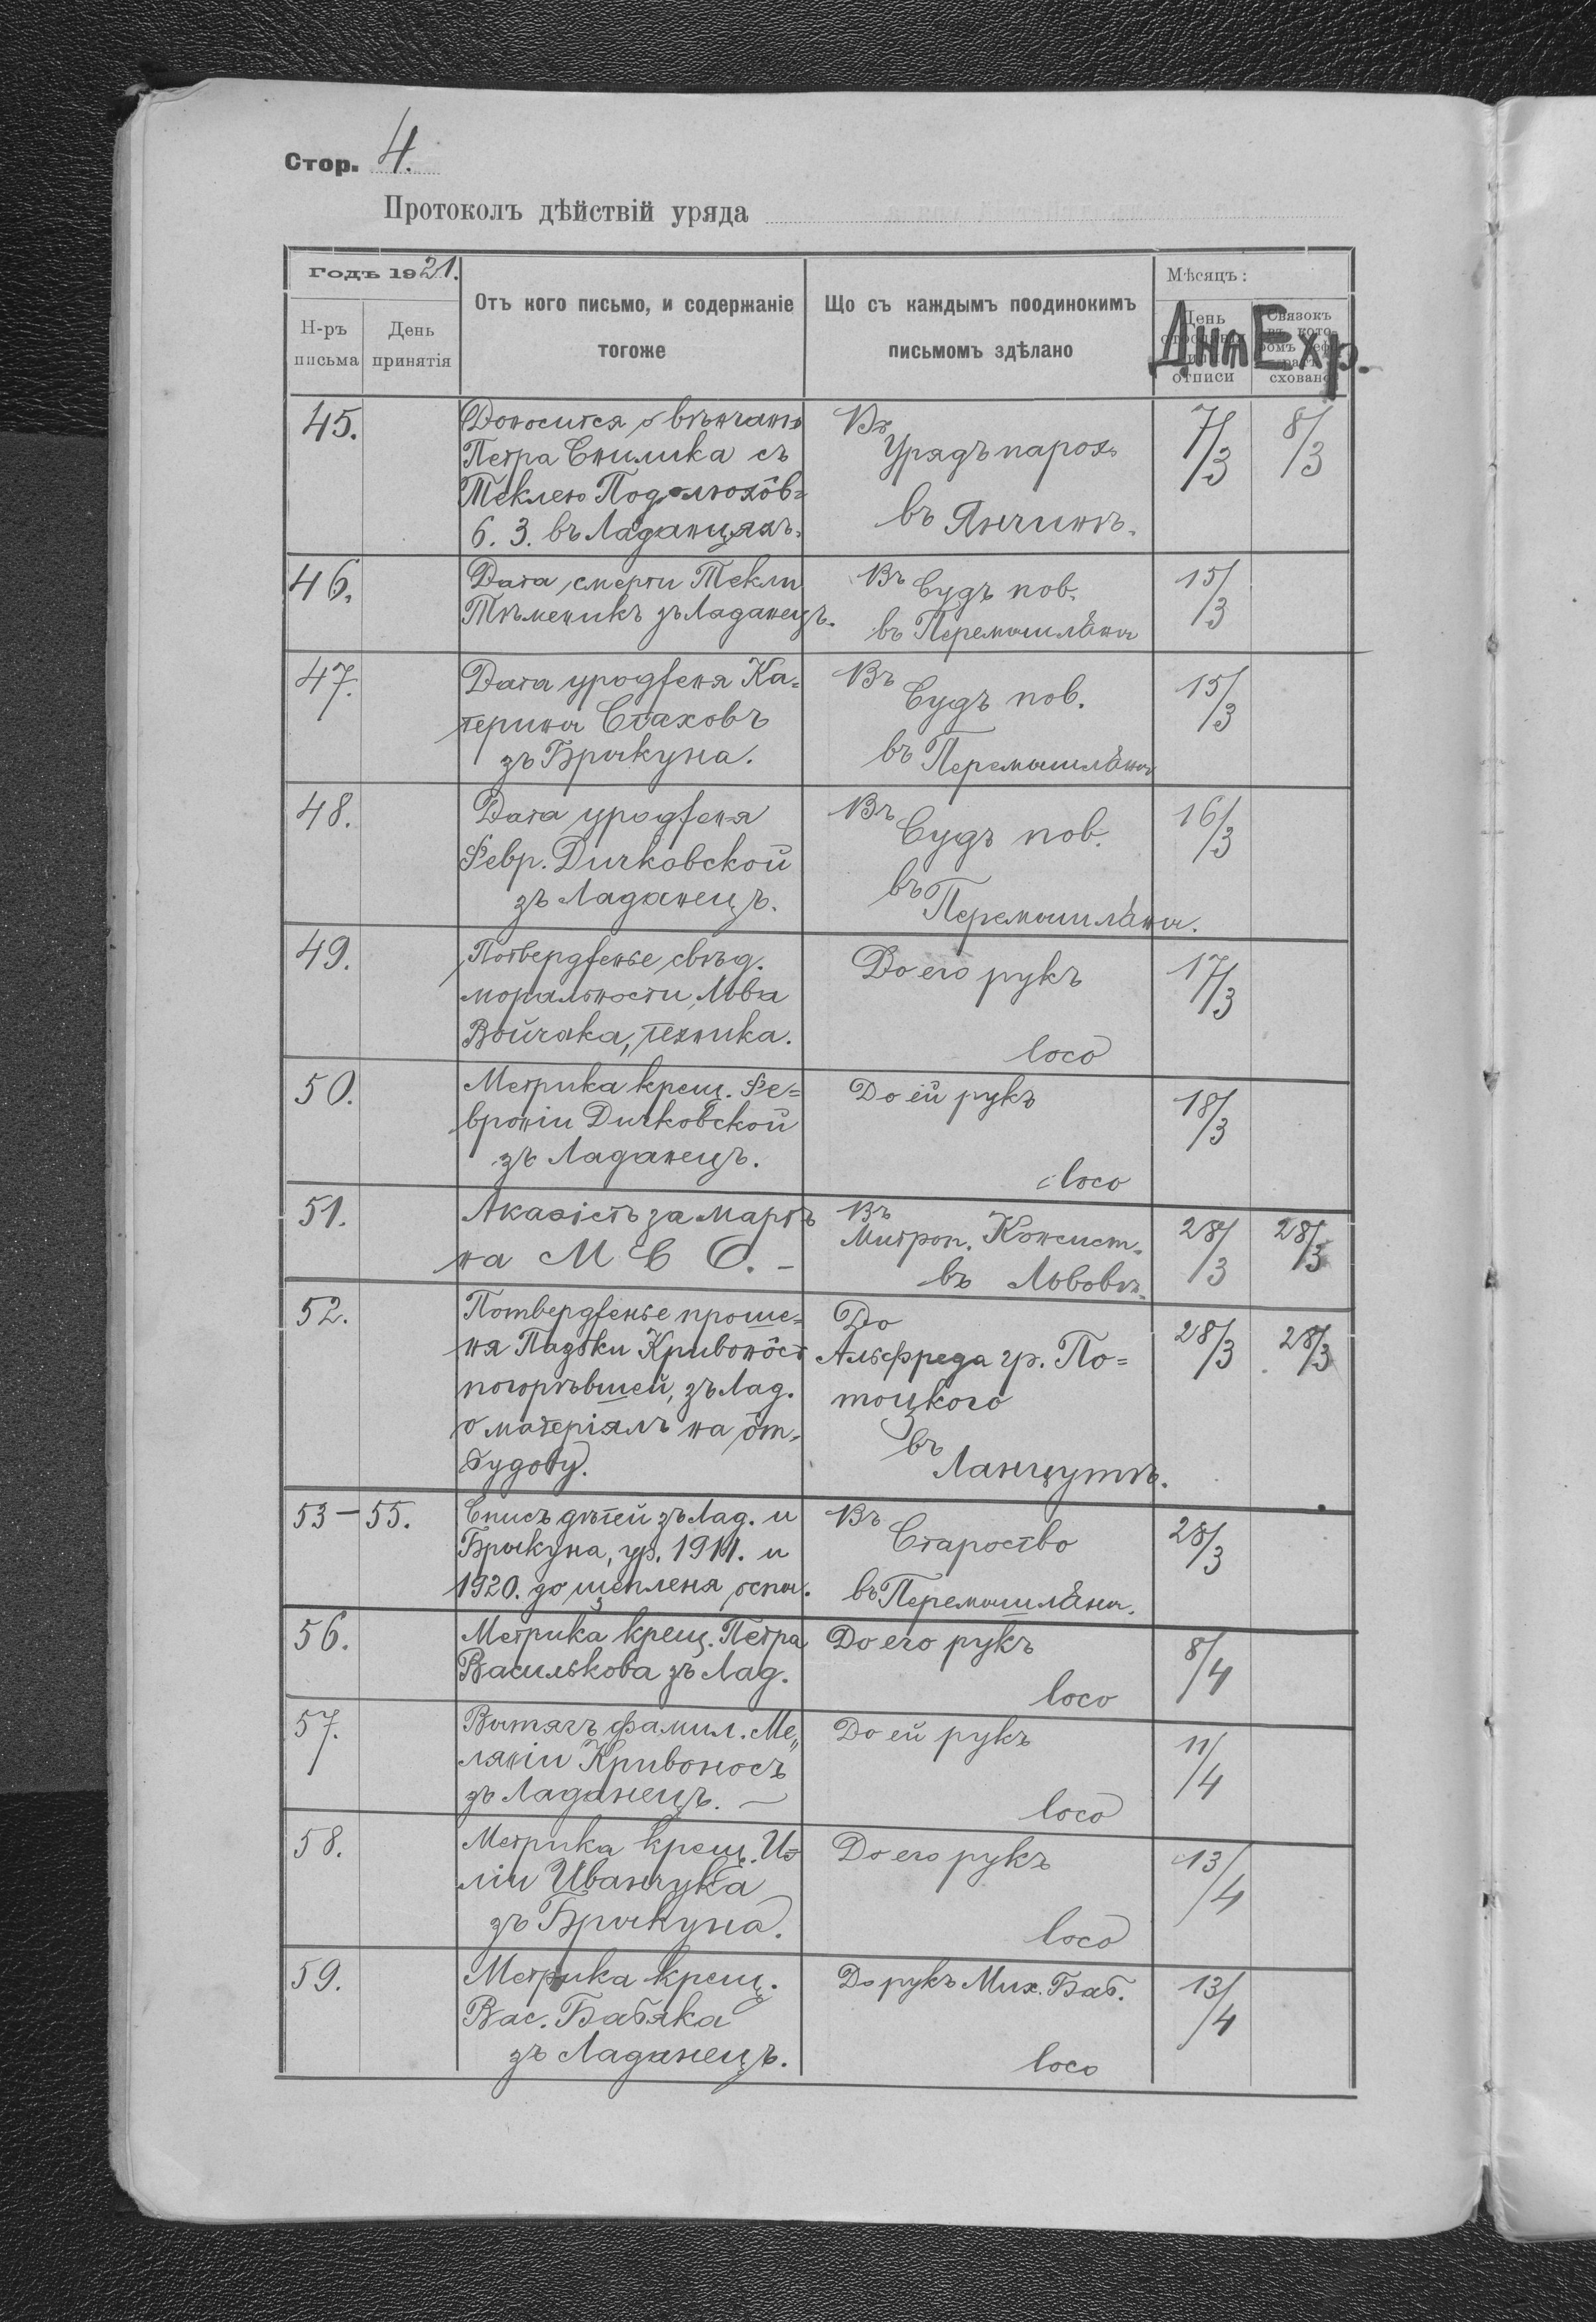 Стор. 4.
Протоколъ дѣйствій уряда
Годъ 1921.
Н-ръ письма
День принятія
Отъ кого письмо, и содержаніе
тогоже
Що съ каждымъ поодинокимъ
письмомъ здѣлано
Мѣсяцъ:
День
отписи
Связокъ
въ кото-
схована
Дня Exp.
45.
Доносится о вѣнчаню
Петра Снилика съ
Теклею
6. 3. въ Ладанцяхъ.
Въ
Урядъ парох.
въ Янчинѣ.
7/3
8/3
46.
Дата смерти Текли
зъ Ладанецъ.
Въ Судъ пов.
въ Перемышляны
15/3
47.
Дата уродженя Ка=
терины Стаховъ
зъ Брыкуна.
Въ
Судъ пов.
въ Перемышляны
15/3
48.
Дата уродженя
Февр. Дичковской
зъ Ладанецъ.
Въ
Судъ пов.
въ
Перемышляны.
16/3
49.
Потвердженье свѣд.
моральности Льва
Войчака, техника.
До его рукъ
loco
17/3
50.
Метрика крещ. Фе=
вроніи Дичковской
зъ Ладанецъ.
До ей рукъ
loco
18/3
51.
за мартъ
на М С О. –
Въ
Митроп. Консист.
въ Львовѣ.
28/3
28/3
52.
Потвердженье проше=
ня Падѣки Кривонôсъ
погорѣвшей, зъ Лад.
о матеріялъ на ôт=
будову.
До
Альфреда гр. По=
тоцкого
въ
Ланцутѣ.
28/3
28/3
53 – 55.
Списъ дѣтей зъ Лад. и
Брыкуна, ур. 1911. и
1920. до щепленя оспы.
Въ
Староство
въ Перемышляны.
28/3
56.
Метрика крещ. Петра
Василькова зъ Лад.
До его рукъ
loco
8/4
57.
Вытягъ фамил. Ме„
ляніи Кривоносъ
зъ Ладанецъ. –
До ей рукъ
loco
11/4
58.
Метрика крещ. И=
ліи Иванчука
зъ Брыкуна.
До его рукъ
loco
13/4
59.
Метрика крещ.
Вас. Бабяка
зъ Ладанецъ.
До рукъ Мих. Баб.
loco
13/4